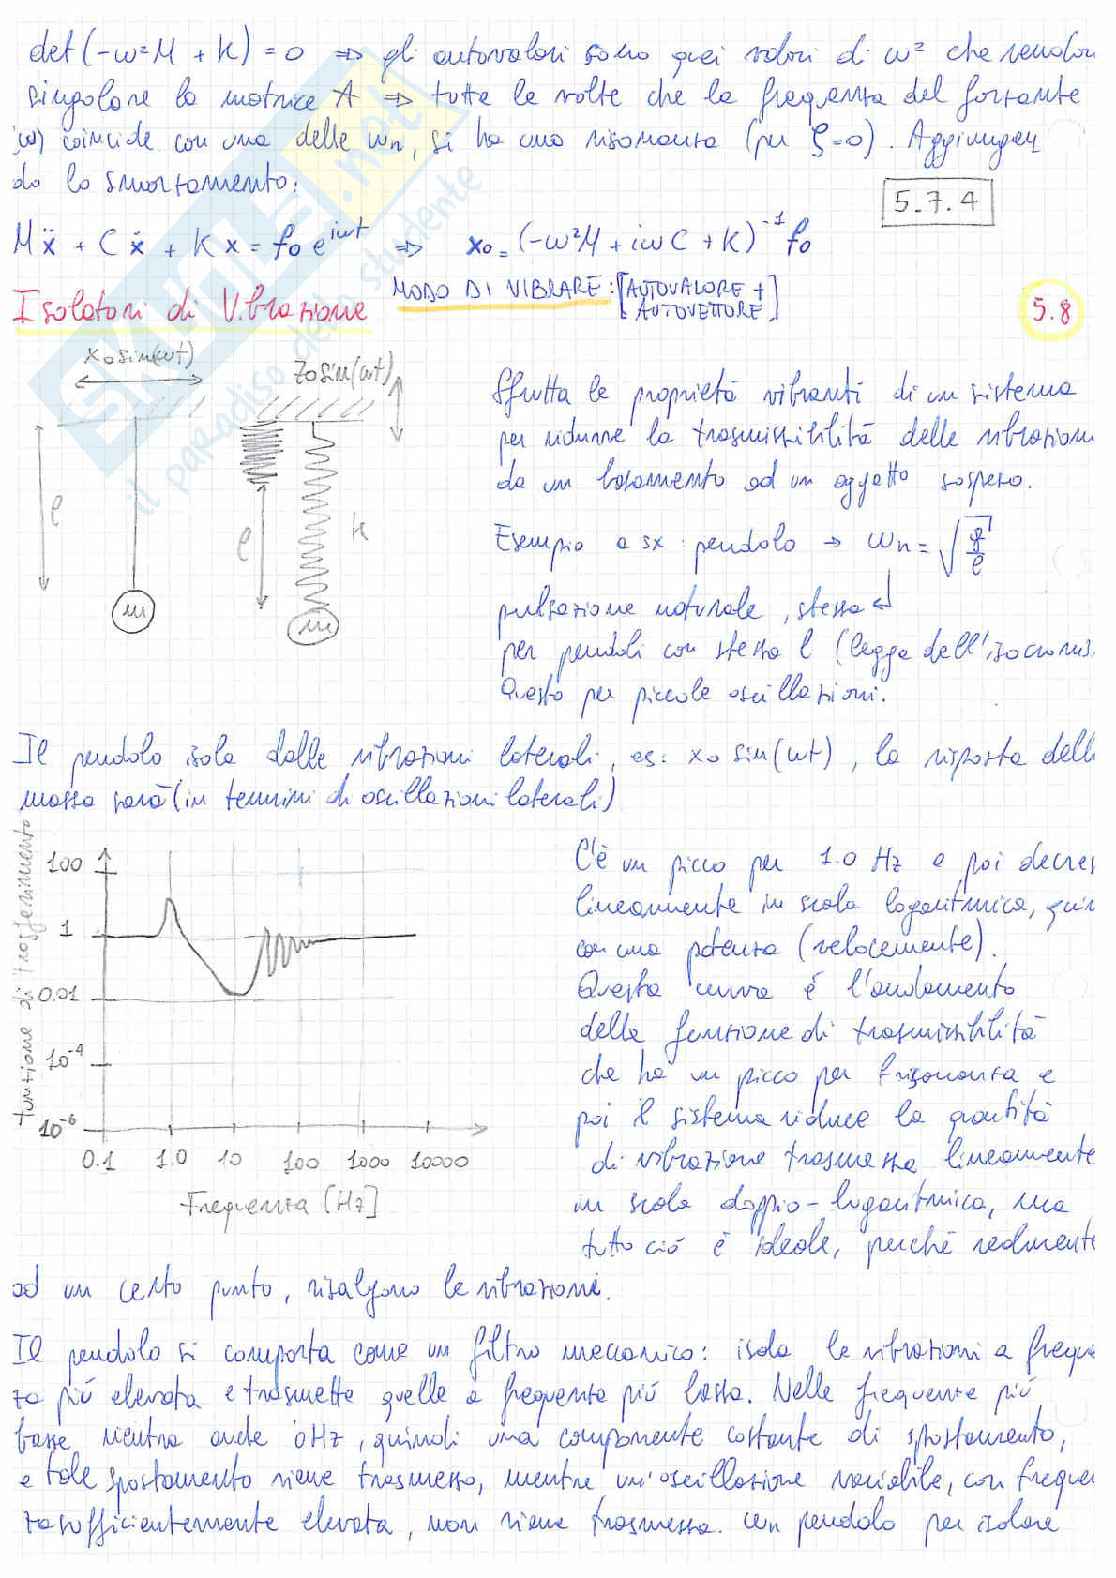 det(-ω²M + K) = 0 ⇒ gli autovalori sono quei valori di ω² che rendon
singolare la matrice A ⇒ tutte le volte che la frequenza del forzante
(ω) coincide con una delle ωn, si ha una risonanza (per ζ=0). Aggiungen
do lo smorzamento:
5.7.4
Mẍ + Cẋ + Kx = f₀ e^iωt ⇒ x₀ = (-ω²M + iωC + K)⁻¹ f₀
MODO DI VIBRARE: [AUTOVALORE +
AUTOVETTORE]
Isolatori di Vibrazione
5.8
x₀ sin(ωt)
z₀ sin(ωt)
l
l
K
m
m
Sfrutta le proprietà vibranti di un sistema
per ridurre la trasmissibilità delle vibrazioni
da un basamento ad un oggetto sospeso.
Esempio a sx: pendolo → ωn = √g/l
pulsazione naturale, stessa
per pendoli con stessa l (legge dell'isocronis.
Questo per piccole oscillazioni.
Il pendolo isola dalle vibrazioni laterali, es: x₀ sin(ωt), la risposta dell
massa sarà (in termini di oscillazioni laterali)
funzione di trasferimento
100
1
0.01
10⁻⁴
10⁻⁶
0.1 1.0 10 100 1000 10000
Frequenza [Hz]
C'è un picco per 1.0 Hz e poi decres
linearmente in scala logaritmica, quin
con una potenza (velocemente).
Questa curva è l'andamento
della funzione di trasmissibilità
che ha un picco per risonanza e
poi il sistema riduce la quantità
di vibrazione trasmessa linearmente
in scala doppio-logaritmica, ma
tutto ciò è ideale, perché realmente
ad un certo punto, risalgono le vibrazioni.
Il pendolo si comporta come un filtro meccanico: isola le vibrazioni a freque
za più elevata e trasmette quelle a frequenza più bassa. Nelle frequenze più
basse rientra anche 0Hz, quindi una componente costante di spostamento,
e tale spostamento viene trasmesso, mentre un'oscillazione variabile, con freque
za sufficientemente elevata, non viene trasmessa. Un pendolo per isolare
SKUOLA.net
il paradiso dello studente